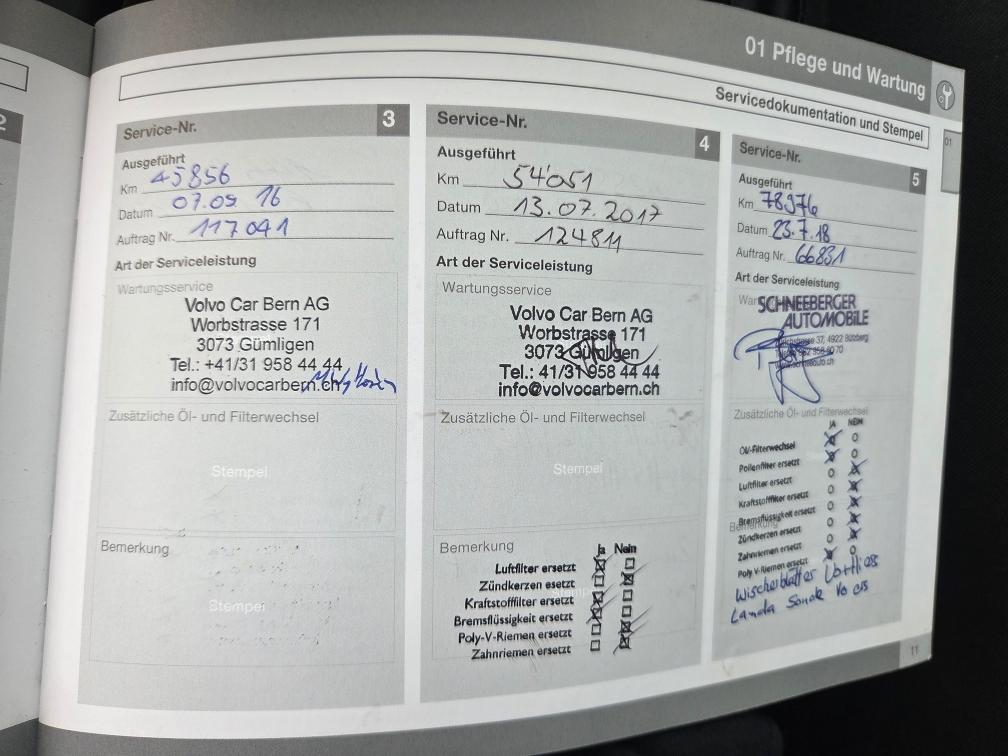 01 Pflege und Wartung
Servicedokumentation und Stempel
01
2
Service-Nr. 3
Ausgeführt
Km 45856
Datum 07.09 16
Auftrag Nr. 117041
Art der Serviceleistung
Wartungsservice
Volvo Car Bern AG
Worbstrasse 171
3073 Gümligen
Tel.: +41/31 958 44 44
info@volvocarbern.ch
Zusätzliche Öl- und Filterwechsel
Stempel
Bemerkung
Stempel
Service-Nr. 4
Ausgeführt
Km 54'051
Datum 13.07.2017
Auftrag Nr. 124811
Art der Serviceleistung
Wartungsservice
Volvo Car Bern AG
Worbstrasse 171
3073 Gümligen
Tel.: 41/31 958 44 44
info@volvocarbern.ch
Zusätzliche Öl- und Filterwechsel
Stempel
Bemerkung
Ja Nein
Luftfilter ersetzt
Zündkerzen esetzt
Kraftstofffilter ersetzt
Bremsflüssigkeit ersetzt
Poly-V-Riemen ersetzt
Zahnriemen ersetzt
Service-Nr. 5
Ausgeführt
Km 78976
Datum 23.7.18
Auftrag Nr. 66831
Art der Serviceleistung
SCHNEEBERGER
AUTOMOBILE
37, 4922 Bützberg
Zusätzliche Öl- und Filterwechsel
JA NEIN
Öl/-Filterwechsel
Pollenfilter ersetzt
Luftfilter ersetzt
Kraftstofffilter ersetzt
Bremsflüssigkeit ersetzt
Bemerkung
Zündkerzen ersetzt
Zahnriemen ersetzt
Poly V-Riemen ersetzt
Wischerblätter
Landa Sonde
11